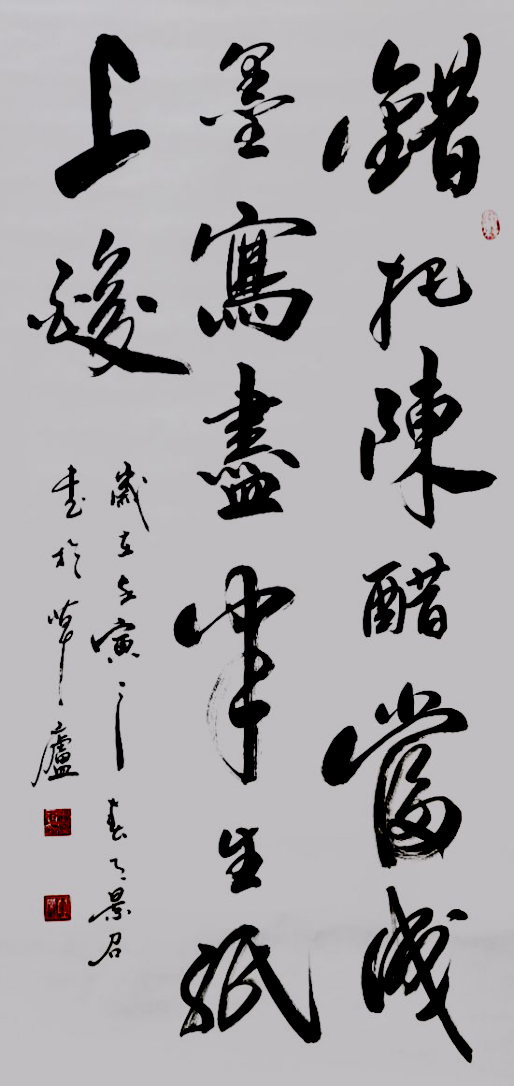 錯把陳醋當成
墨寫盡半生紙
上酸
歲在壬寅之春月景召
書於草廬